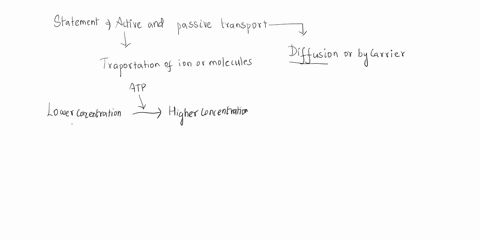 Statement → Active and passive transport
Diffusion or by Carrier
Traportation of ion or molecules
ATP
Lower concentration → Higher concentration